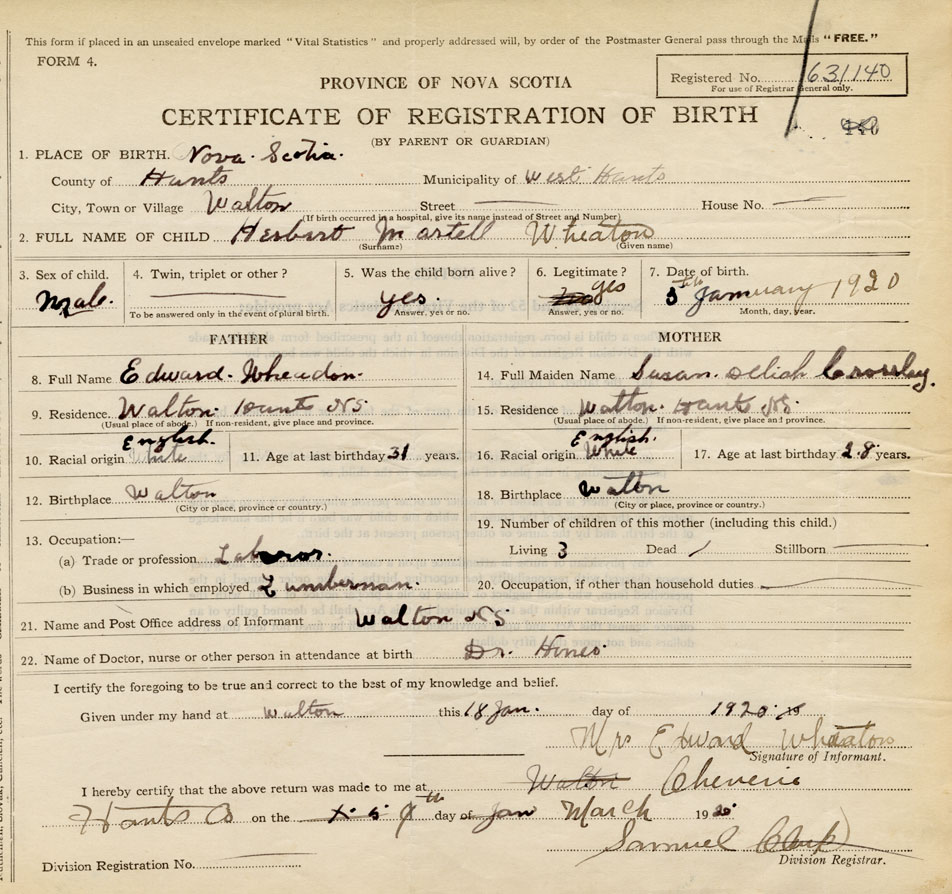 This form if placed in an unsealed envelope marked "Vital Statistics" and properly addressed will, by order of the Postmaster General pass through the Mails "FREE."
FORM 4.
Registered No. 631140
For use of Registrar General only.
PROVINCE OF NOVA SCOTIA
CERTIFICATE OF REGISTRATION OF BIRTH
(BY PARENT OR GUARDIAN)
1. PLACE OF BIRTH. Nova Scotia.
County of Hants Municipality of West Hants
City, Town or Village Walton Street House No.
(If birth occurred in a hospital, give its name instead of Street and Number)
2. FULL NAME OF CHILD Herbert Martell Wheaton
(Surname) (Given name)
3. Sex of child. 4. Twin, triplet or other? 5. Was the child born alive? 6. Legitimate? 7. Date of birth.
Male. yes. yes 5th January 1920
To be answered only in the event of plural birth. Answer, yes or no. Answer, yes or no. Month, day, year.
FATHER MOTHER
8. Full Name Edward. Wheadon. 14. Full Maiden Name Susan. Crossley.
9. Residence. Walton. Hants NS 15. Residence Walton. Hants NS
(Usual place of abode.) If non-resident, give place and province. (Usual place of abode.) If non-resident, give place and province.
English. English.
10. Racial origin White 11. Age at last birthday 31 years. 16. Racial origin White 17. Age at last birthday 28 years.
12. Birthplace Walton 18. Birthplace Walton
(City or place, province or country.) (City or place, province or country.)
13. Occupation:— 19. Number of children of this mother (including this child.)
(a) Trade or profession Laboror. Living 3 Dead / Stillborn
(b) Business in which employed Lumberman. 20. Occupation, if other than household duties
21. Name and Post Office address of Informant Walton NS
22. Name of Doctor, nurse or other person in attendance at birth Dr. Hines
I certify the foregoing to be true and correct to the best of my knowledge and belief.
Given under my hand at Walton this 18 Jan. day of 1920
Mrs Edward Wheaton
Signature of Informant.
I hereby certify that the above return was made to me at Walton Cheverie
Hants Co on the 9th day of Jan March 1920
Samuel
Division Registrar.
Division Registration No.